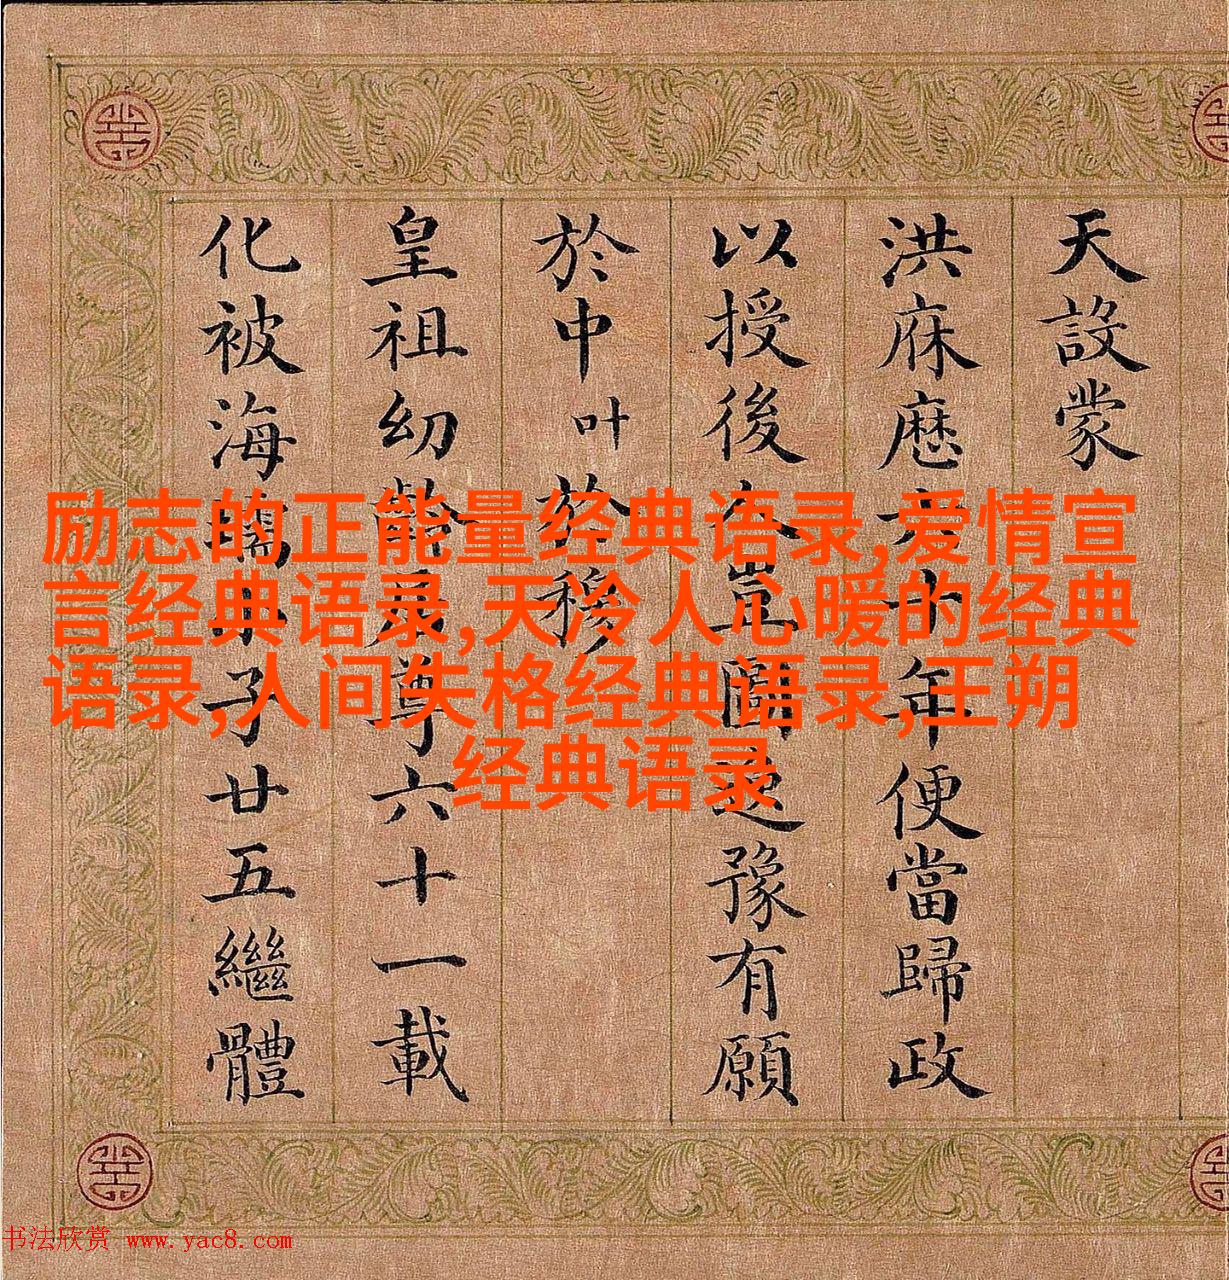 天設蒙
洪庥歴六十年便當歸政
以授後人豈圖逸豫有願
於中叶於穆
皇祖幼齡尊六十一載
化被海子廿五繼體
励志的正能量经典语录,爱情宣
言经典语录,天冷人心暖的经典
语录,人间失格经典语录,王朔
经典语录
书法欣赏 www.yac8.com